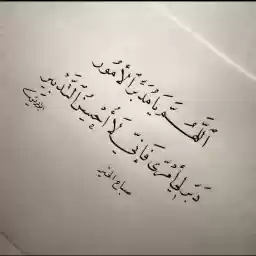 اَللّٰهُمَّ يَا مُدَبِّرَ الأُمُورِ
دَبِّرْ لِي أَمْرِي فَإِنِّي لَا أُحْسِنُ التَّدْبِيرَ
صباح الخير